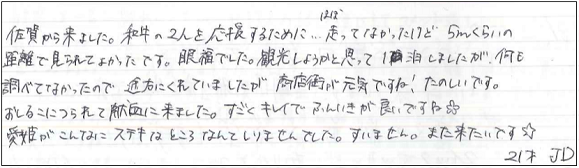 佐賀から来ました。和牛の2人を応援するために…ほぼ走ってなかったけど 5mくらいの
距離で見られてよかったです。眼福でした。観光しようかと思って1泊しましたが、何も
調べてなかったので 途方にくれていましたが 商店街が元気ですね!たのしいです。
おしるこにつられて献血に来ました。すごくキレイで ふんいきが良いですね☆
愛姫がこんなに ステキなところなんてしりませんでした。すいません。また来たいです☆
21才 JD